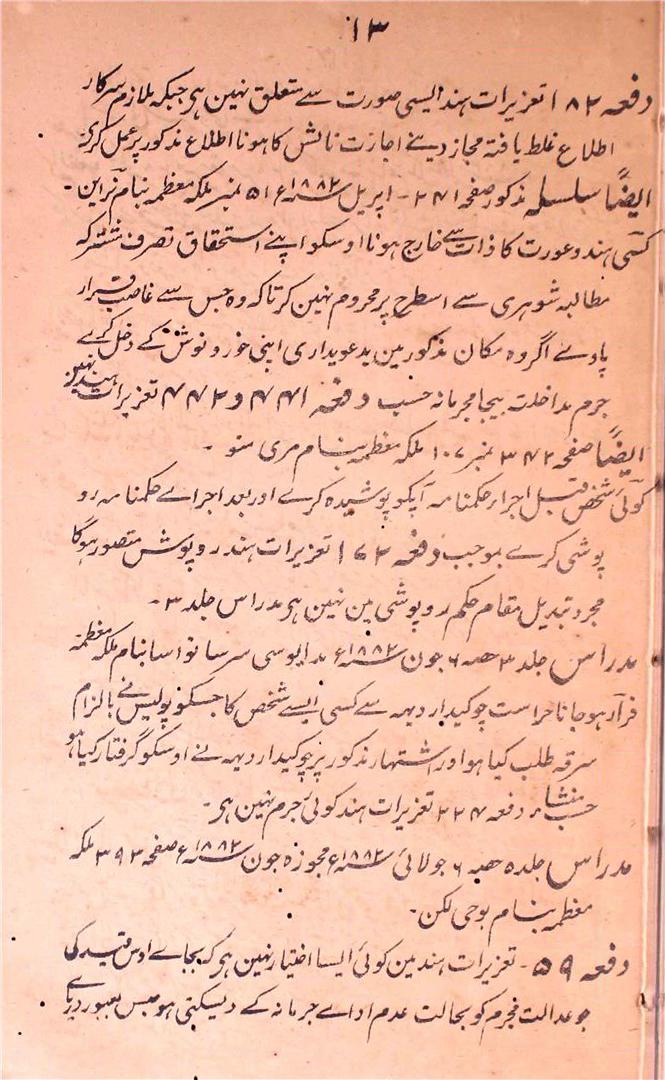 ۱۳
دفعہ ۱۸۲ تعزیرات ہند ایسی صورت سے متعلق نہین ہی جبکہ ملازم سرکار
اطلاع غلط یافتہ مجاز دینے اجازت نالش کا ہونا اطلاع مذکور پر عمل کرکے
ایضاً سلسلہ مذکور صفحہ ۲۴۱ - اپریل سنہ ۱۸۸۲ ع ۵۱ نمبر ملکہ معظمہ بنام نراین -
کسی ہندو عورت کا ذات سے خارج ہونا اوسکو اپنے استحقاق تصرف مشترکہ
مطالبہ شوہری سے اسطرح پر محروم نہین کرتا کہ وہ جس سے غاصب قرار
پاوے اگر وہ مکان مذکور مین بدعویداری اپنی خورونوش کے دخل کرے
جرم مداخلت بیجا مجرمانہ حسب دفعہ ۴۴۱ و ۴۴۲ تعزیرات ہند نہین
ایضاً صفحہ ۳۴۲ نمبر ۱۰۷ ملکہ معظمہ بنام مری سنو -
کوئی شخص قبل اجرار حکمنامہ آپکو پوشیدہ کرے اور بعد اجراے حکمنامہ رو
پوشی کرے بموجب دفعہ ۱۷۲ تعزیرات ہند روپوش متصور ہوگا
مجرد تبدیل مقام حکم روپوشی مین نہین ہی مدراس جلد ۳ -
مدراس جلد ۳ حصہ ۶ جون سنہ ۱۸۸۲ ع سرسانواسا بنام ملکہ معظمہ
فرار ہوجانا حراست چوکیدار دیہہ سے کسی ایسے شخص کا جسکو پولیس نے بالزام
سرقہ طلب کیا ہو اور اشتہار مذکور پر چوکیدار دیہہ نے اوسکو گرفتار کیا ہو
حسب منشاء دفعہ ۲۲۴ تعزیرات ہند کوئی جرم نہین ہی -
مدراس جلد ۵ حصہ ۶ جولائی سنہ ۱۸۸۲ ع مجوزہ جون سنہ ۱۸۸۲ ع صفحہ ۳۹۳ ملکہ
معظمہ بنام بوحی لکن -
دفعہ ۵۹ - تعزیرات ہند مین کوئی ایسا اختیار نہین ہی کہ بجاے اوس قید کی
جو عدالت مجرم کو بحالت عدم اداے جرمانہ کے دیسکتی ہو حبس بعبور دریاے